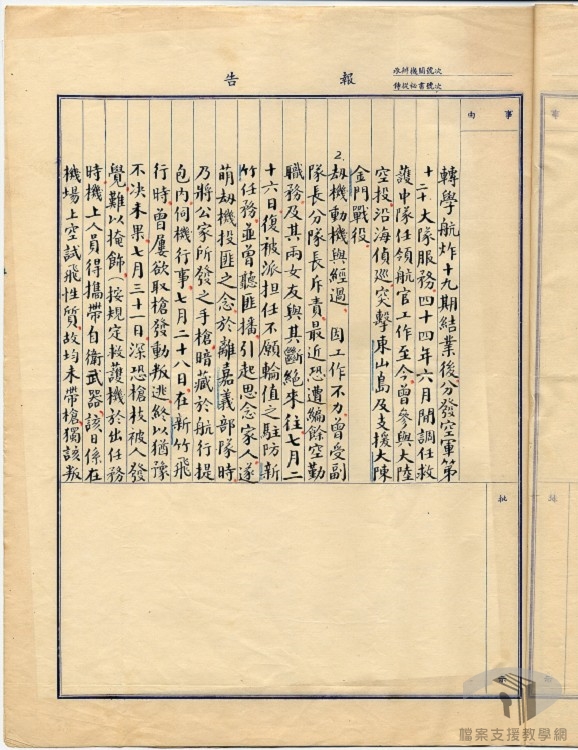 報告
改辦機關號次
轉學航炸十九期結業後分發空軍第
二十大隊服務四十四年六月間調任救
護中隊任領航官工作至今曾參與大陸
空投沿海偵巡突擊東山島及支援大陳
金門戰役
2.劫機動機與經過：因工作不力曾受副
隊長分隊長斥責最近恐遭編餘空勤
職務及其兩女友與其斷絕來往七月二
十六日復被派担任不願輪值之駐防新
竹任務並曾聽匪播引起思念家人遂
萌劫機投匪之念於離嘉義部隊時
乃將公家所發之手槍暗藏於航行提
包內伺機行事七月二十八日在新竹飛
行時曾屢欲取槍發動叛逃終以猶豫
不決未果七月三十一日深恐槍枝被人發
覺難以掩飾按規定救護機於出任務
時機上人員得攜帶自衛武器該日係在
機場上空試飛性質故均未帶槍獨該叛
檔案支援教學網